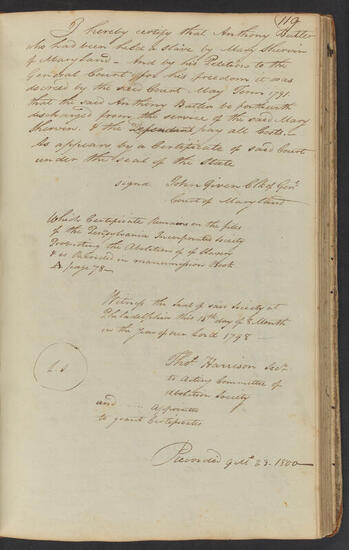 119
I hereby certify that Anthony Butler
who had been held a slave by Mary Sherwin
of Maryland - And by his Petition to the
General Court for his freedom it was
decreed by the said Court May Term 1791.
that the said Anthony Butler be forthwith
discharged from the service of the said Mary
Sherwin. & the Defendant pay all Costs.
As appears by a Certificate of said Court
under the seal of the State
signd John Gwinn Clk of Genl
Court of Maryland
Which Certificate Remains on the files
of the Pensylvania Incorporated Society
Promoting the Abolition of Slavery
& is Recorded in manumission Book
A page 78-
Witness the Seal of said Society at
Philadelphia this day of 8 Month
in the Year of our Lord 1798-
L S
Thos. Harrison Secy
to Acting Committee of
Abolition Society
and Appointed
to grant Certificates
Recorded 9 Mo 23. 1800-